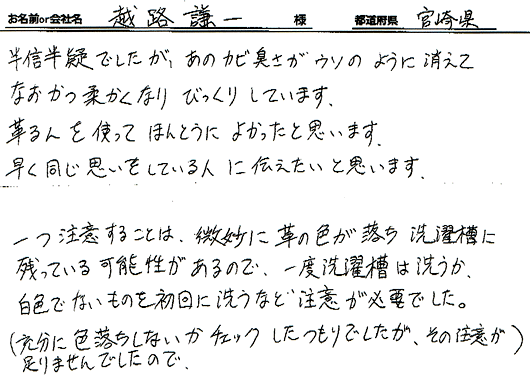 お名前or会社名 越路謙一 様 都道府県 宮崎県
半信半疑でしたが、あのカビ臭さがウソのように消えて
なおかつ柔かくなり びっくりしています.
革るんを使って ほんとうに よかったと思います.
早く同じ思いをしている人に伝えたいと思います.
一つ注意することは、微妙に革の色が落ち 洗濯槽に
残っている可能性があるので、一度洗濯槽は洗うか、
白色でないものを初回に洗うなど注意が必要でした。
(充分に色落ちしないかチェックしたつもりでしたが、その注意が
足りませんでしたので.)